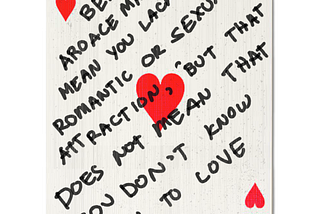 BE
AROACE MA
MEAN YOU LACK
ROMANTIC OR SEXU
ATTRACTION, BUT THAT
DOES NOT MEAN THAT
YOU DON'T KNOW
TO LOVE